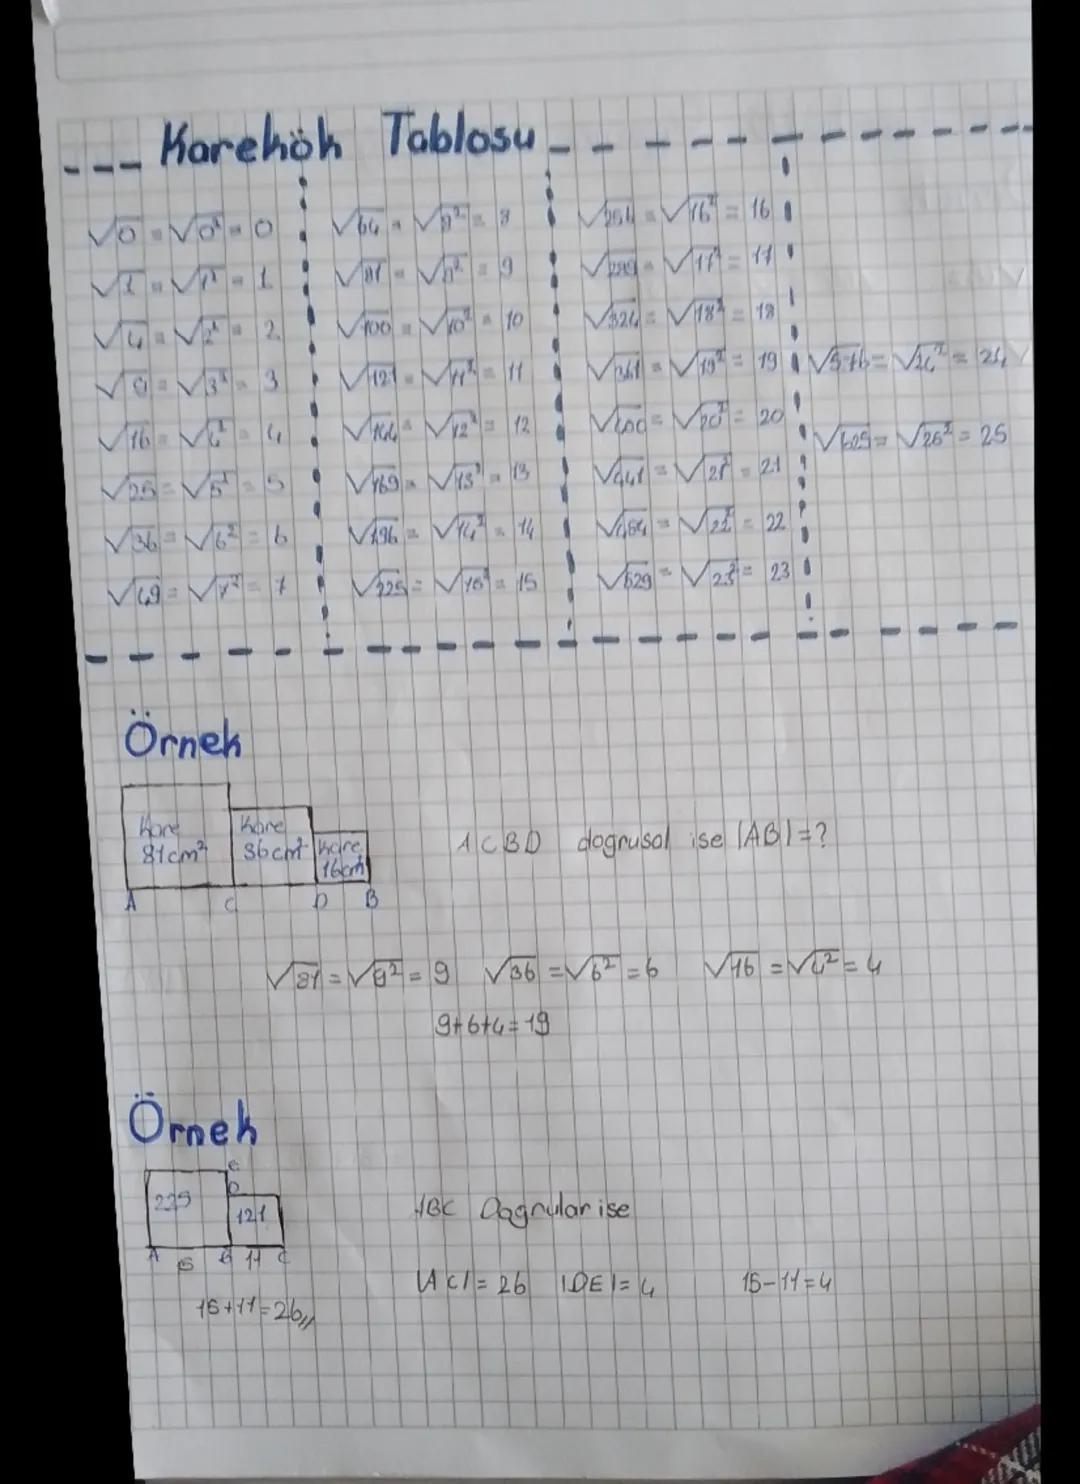 Karekök Tablosu
√0 = √0² = 0
√1 = √1² = 1
√4 = √2² = 2
√9 = √3² = 3
√16 = √4² = 4
√25 = √5² = 5
√36 = √6² = 6
√49 = √7² = 7
√64 = √8² = 8
√81 = √9² = 9
√100 = √10² = 10
√121 = √11² = 11
√144 = √12² = 12
√169 = √13² = 13
√196 = √14² = 14
√225 = √15² = 15
√256 = √16² = 16
√289 = √17² = 17
√324 = √18² = 18
√361 = √19² = 19
√400 = √20² = 20
√441 = √21² = 21
√484 = √22² = 22
√529 = √23² = 23
√576 = √24² = 24
√625 = √25² = 25
Örnek
Kare 81cm²
Kare 36cm²
Kare 16cm²
A C D B
ACBD doğrusal ise |AB| = ?
√81 = √9² = 9 √36 = √6² = 6 √16 = √4² = 4
9+6+4=19
Örnek
E
D
225
121
A 15 B 11 C
15+11=26//
ABC Dogrular ise
|AC| = 26 |DE| = 4 15-11=4